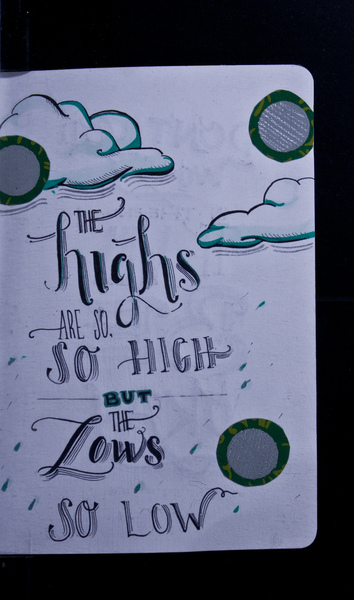 THE
highs
ARE SO,
SO HIGH
BUT
THE
Lows
SO LOW